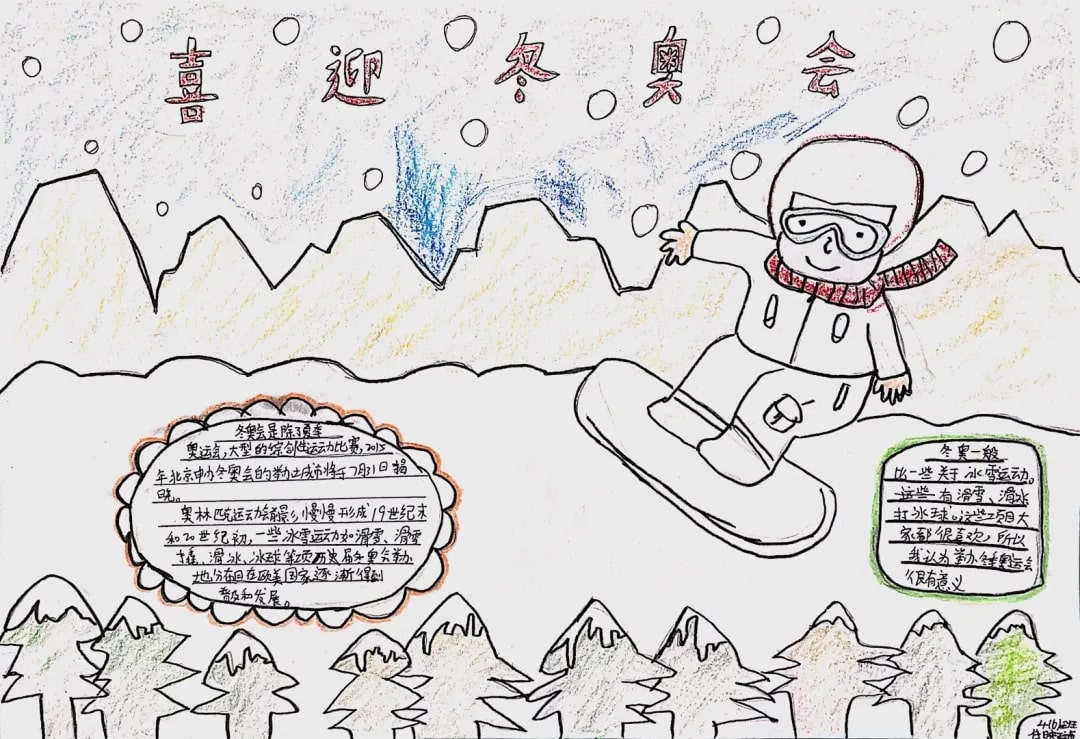 喜迎冬奥会
冬奥会是除了夏季
奥运会,大型的综合性运动比赛,2015
年北京申办冬奥会的举办城市将于7月31日揭
晓。
奥林匹克运动会 慢慢形成19世纪末
和20世纪初,一些冰雪运动如滑雪、滑雪
、滑冰、冰球等项 历史届冬奥会举办
地分 在欧美国家逐渐得到
普及和发展。
冬奥一般
比一些关于冰雪运动。
这些有滑雪、滑冰
打冰球。这些项目大
家都很喜欢,所以
我认为举办冬奥运会
很有意义
4(6)班